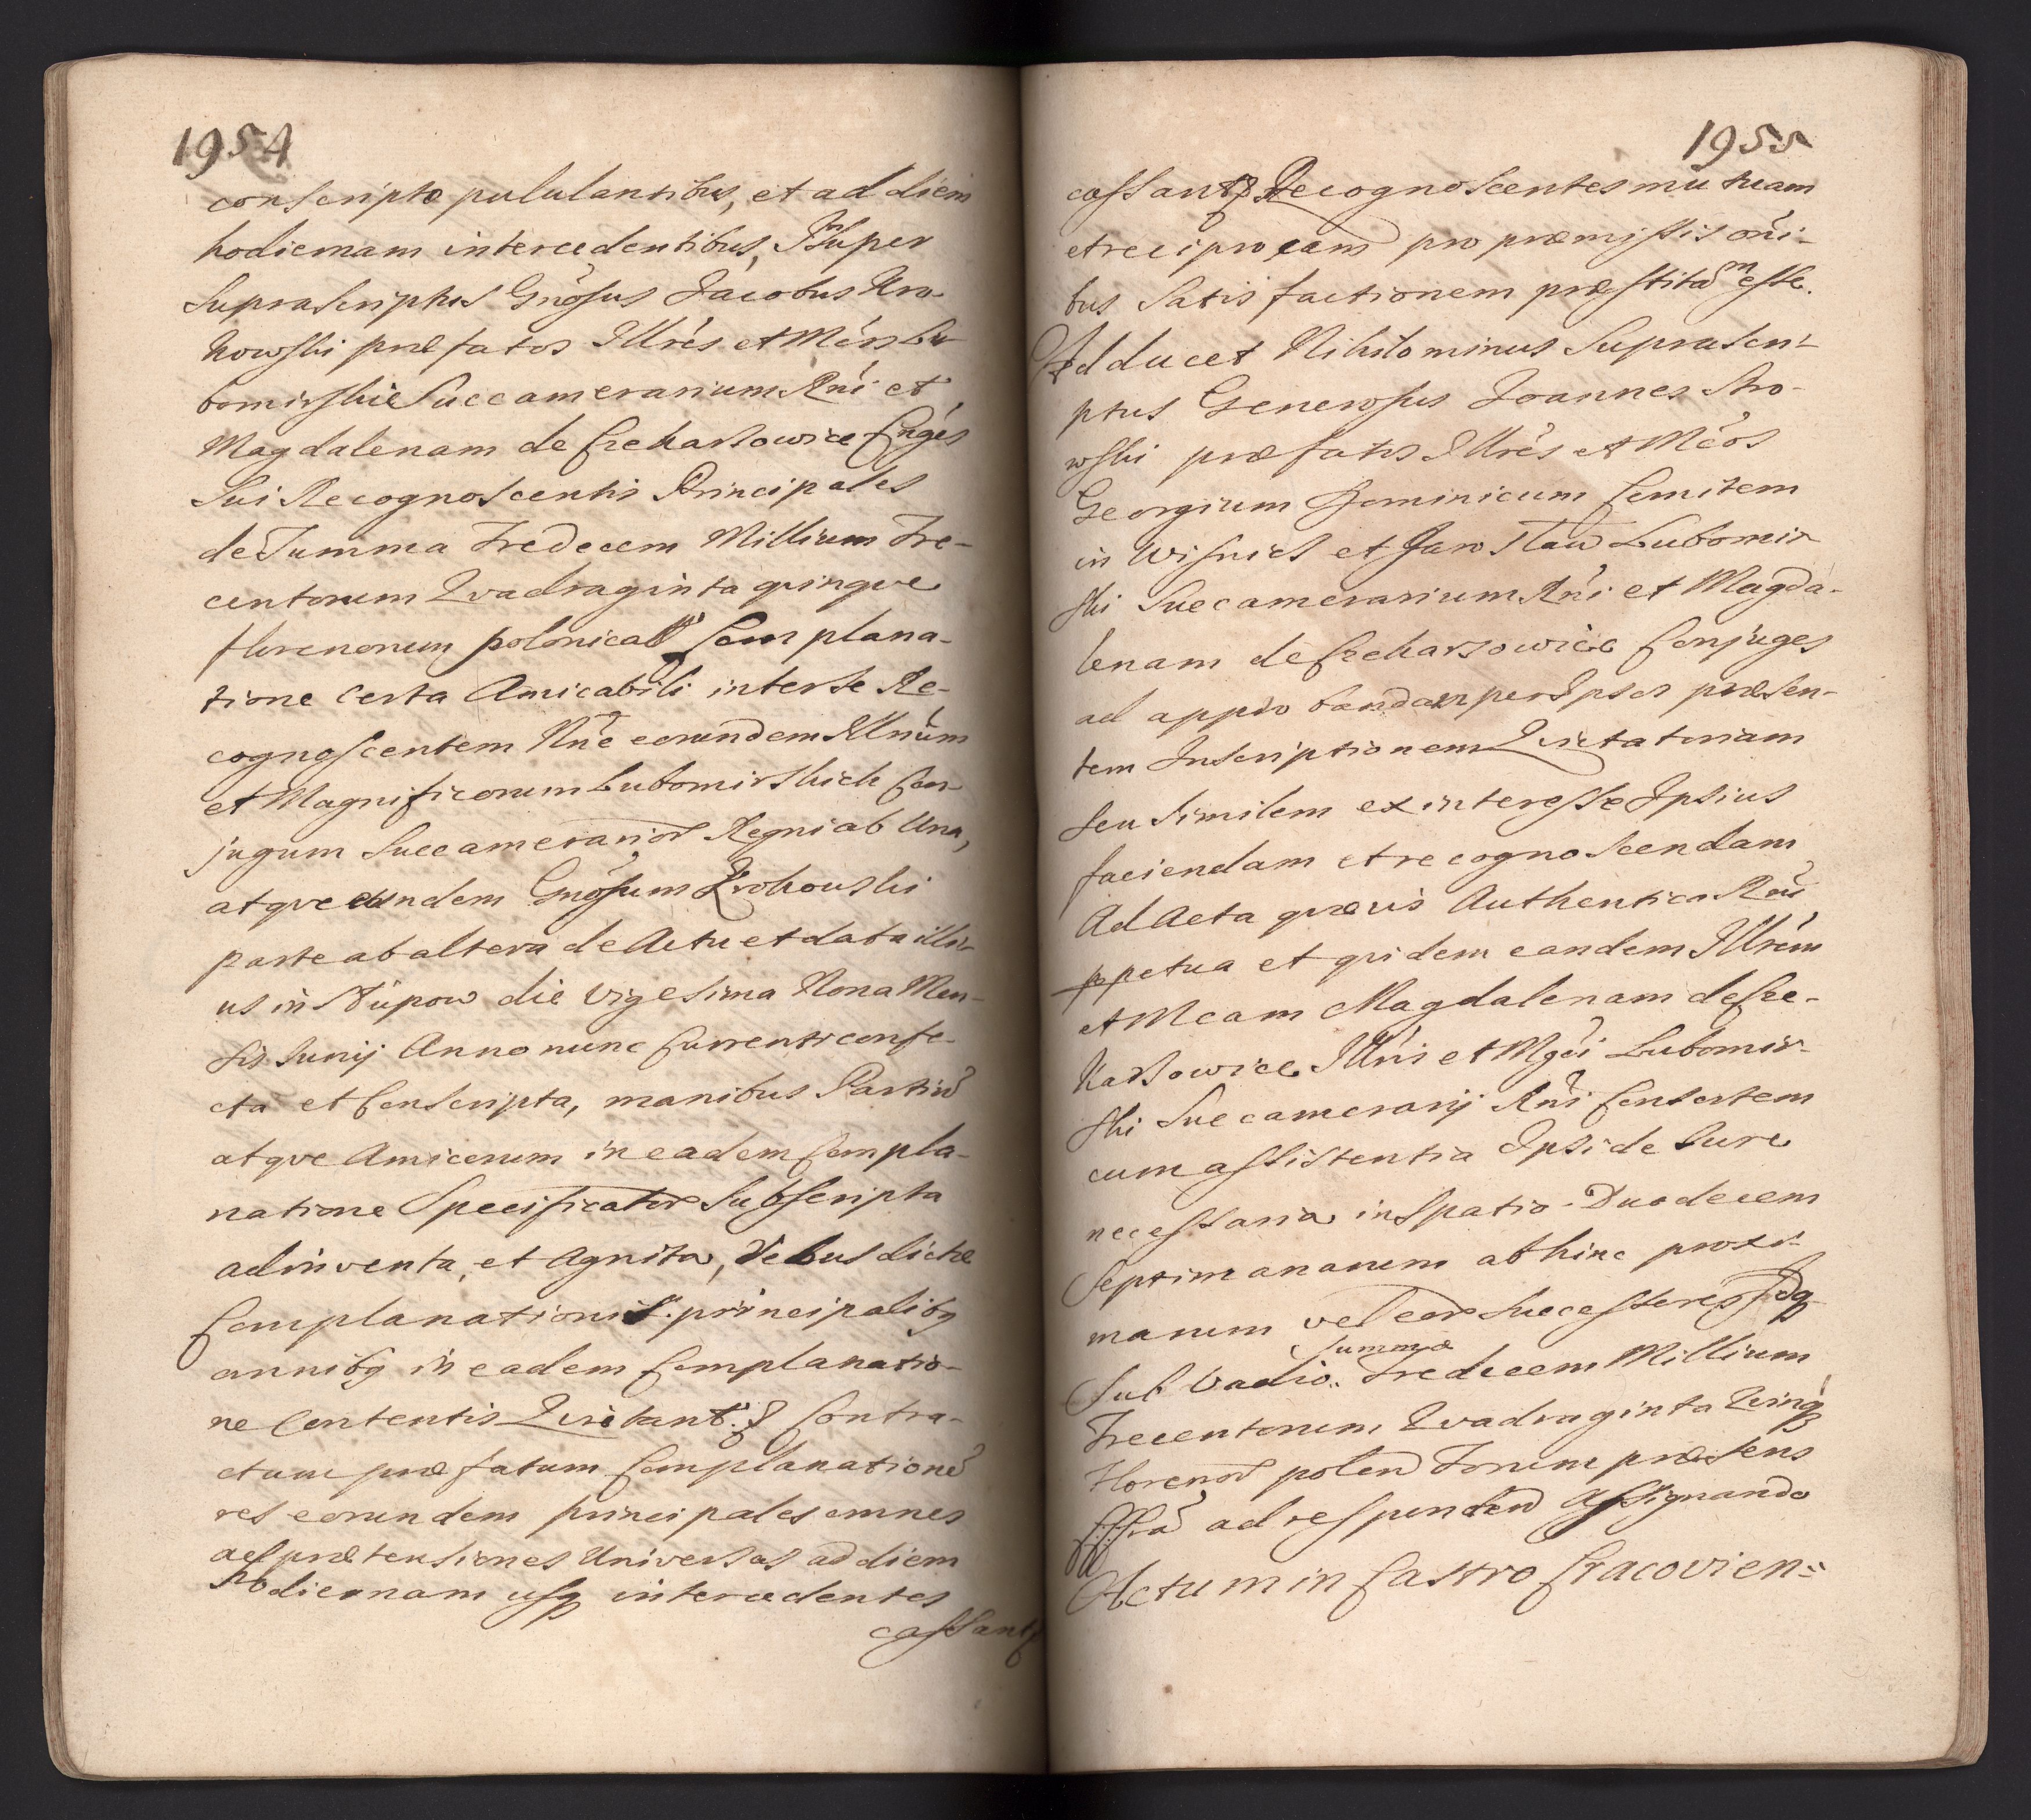 1954
conscripto pululantibus, et ad diem
hodiernam intercedentibus,
Suprascriptus Gnosus Jacobus Kro-
howski præfatos Illres et Mcos Lu-
bomirskie Succamerarium Rni et
Magdalenam de Czekarzowice Cnges
Sui Recognoscentis Principales
de Summa Tredecem Millium Tre-
centorum Qvadraginta qvinqve
florenorum polonical Complana-
tione certa Amicabili inter se Re-
cognoscentem Nne eorundem Illrium
et Magnificorum Lubomirskich Con-
jugum Succamerarior Regni ab Una,
atqve eundem Gnosum Krohowski
parte ab altera de Actu et data illi-
us in Stupow die Vigesima Nona Men-
sis Junij Anno nunc Currenti confe-
cta et Conscripta, manibus Partiu
atqve Amicorum in eadem Compla-
natione Specificator Subscripta
adinventa, et Agnita, de bus dictæ
Complanationis principalibq
annibq in eadem Complanatio-
ne Contentis Qvietant. Contra-
ctum præfatum Complanatione
res eorundem principales omnes
ac prætensiones Universas ad diem
hodiernam usq intercedentes
cassantq
1955
cassantq Recognoscentes mutuam
et reciprocam pro præmissis oni-
bus Satisfactionem præstitam esse.
Adducet Nihilominus Suprascri-
ptus Generosus Joannes Kro-
wski præfatos Illres et Mcos
Georgium Dominicum Comitem
in Wisnicz et Jaroslau Lubomir-
ski Succamerarium Rni et Magda-
lenam de Czekarzowice Conjuges
ad approbandam per Ipsos præsen-
tem Inscriptionem Qvietatoriam
seu Similem ex interesse Ipsius
faciendam et recognoscendam
Ad Acta qvævis Authentica Rni
ppetua et qvidem eandem Illrem
et Mcam Magdalenam de Cze-
karzowice Illris et Mgci Lubomir-
ski Succamerarij Rni Consortem
cum assistentia Ipsi de Jure
necessaria in Spatio Duodecem
Septimanarum abhinc proxi-
marum vel eor Successores Idq
Sub Vadio Summæ Tredecem Millium
Trecentorum Qvadraginta Qvinq
florenor polon Forum præsens
ad responden Assignando
Actum in Castro Cracovien: